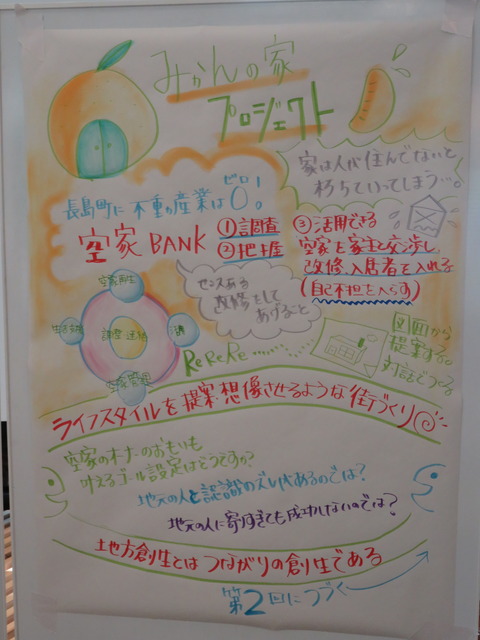 みかんの家
プロジェクト
家は人が住んでないと
朽ちていってしまう…。
長島町に不動産業は0!。
ゼロ
空家BANK
①調査
②把握
③活用できる
空家を家主と交渉し、
改修、入居者を入れる
(自己負担をへらす)
空家再生
調整・連絡
空家管理
センスある
改修をして
あげること
ReReRe・・・・・・
図面から
提案する。
対話をつくる
ライフスタイルを提案・想像させるような街づくり
空家のオーナーのおもいも
叶えるゴール設定はどうですか?
地元の人と認識のズレがあるのでは?
地元の人に寄すぎても成功しないのでは?
地方創生とはつながりの創生である
第2回につづく